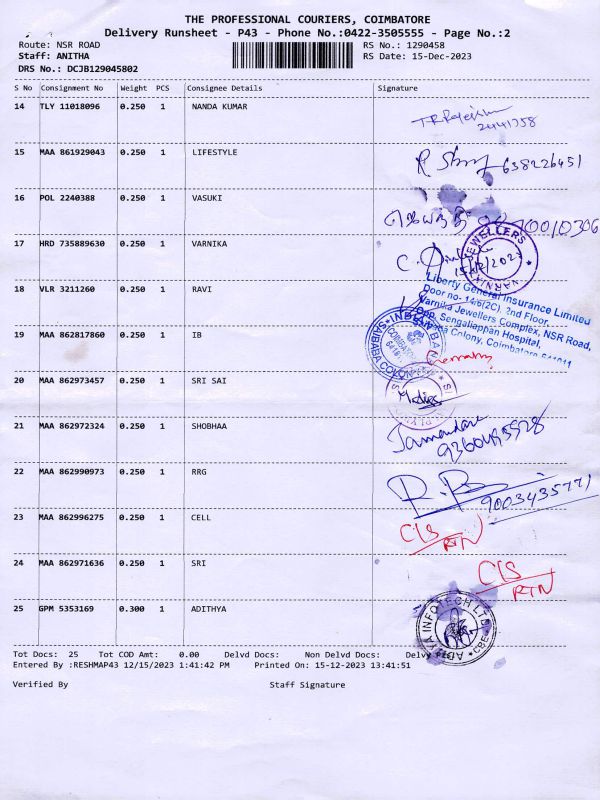 THE PROFESSIONAL COURIERS, COIMBATORE
Delivery Runsheet - P43 - Phone No.:0422-3505555 - Page No.:2
Route: NSR ROAD RS No.: 1290458
Staff: ANITHA RS Date: 15-Dec-2023
DRS No.: DCJB129045802
S No Consignment No Weight PCS Consignee Details Signature
14 TLY 11018096 0.250 1 NANDA KUMAR
15 MAA 861929043 0.250 1 LIFESTYLE
16 POL 2240388 0.250 1 VASUKI
17 HRD 735889630 0.250 1 VARNIKA
JEWELLERS
VARNIKA
18 VLR 3211260 0.250 1 RAVI
Liberty General Insurance Limited
Door no- 14/6(2C), 2nd Floor,
Varnika Jewellers Complex, NSR Road,
Opp. Sengaliappan Hospital,
Colony, Coimbatore 641011
19 MAA 862817860 0.250 1 IB
SAIBABA COLONY
20 MAA 862973457 0.250 1 SRI SAI
21 MAA 862972324 0.250 1 SHOBHAA
22 MAA 862990973 0.250 1 RRG
9003435771
23 MAA 862996275 0.250 1 CELL
C/S
RTN
24 MAA 862971636 0.250 1 SRI
C/S
RTN
25 GPM 5353169 0.300 1 ADITHYA
INFOTECH LTD
CBE
Tot Docs: 25 Tot COD Amt: 0.00 Delvd Docs: Non Delvd Docs: Delvy
Entered By :RESHMAP43 12/15/2023 1:41:42 PM Printed On: 15-12-2023 13:41:51
Verified By Staff Signature